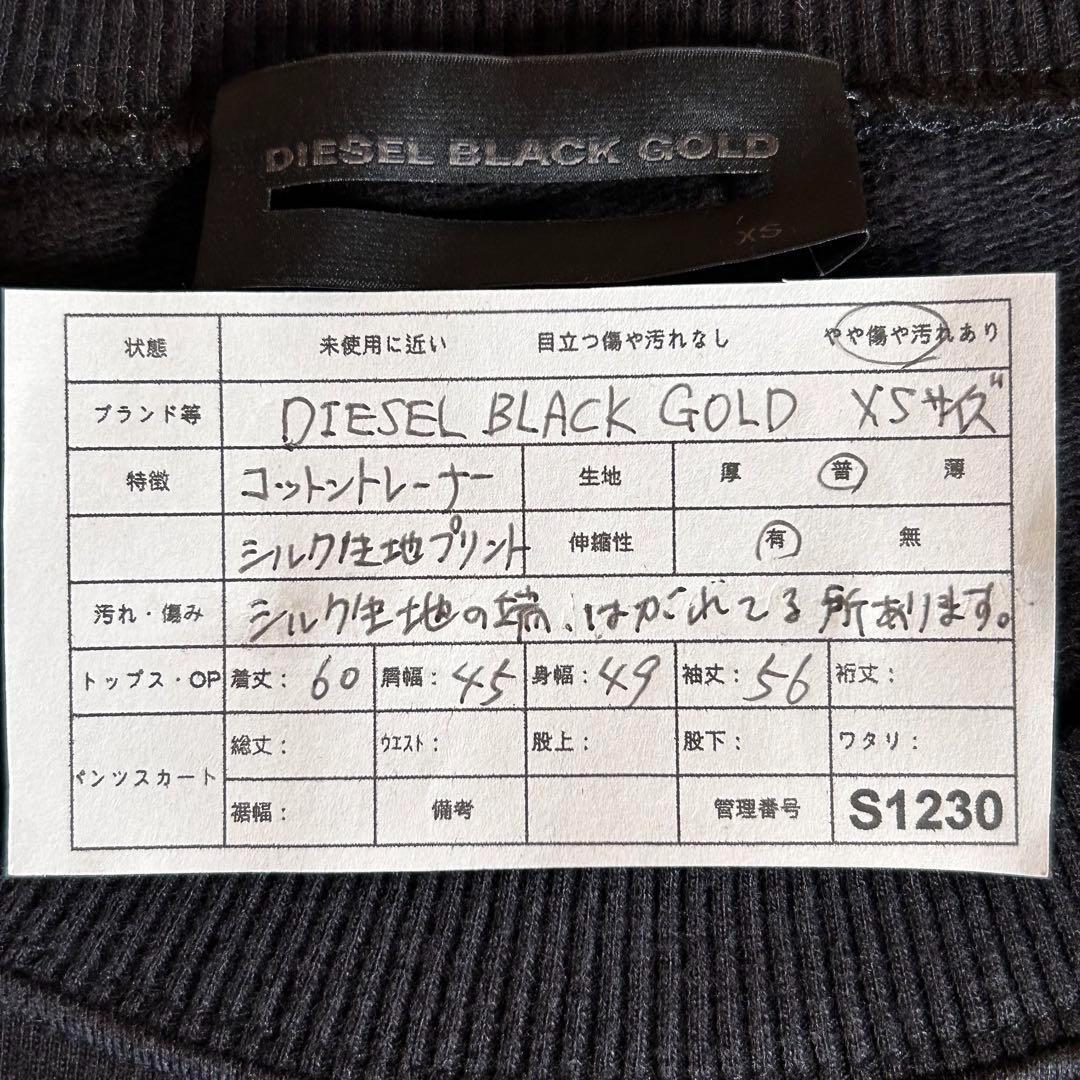 DIESEL BLACK GOLD
XS
状態 未使用に近い 目立つ傷や汚れなし やや傷や汚れあり
ブランド等 DIESEL BLACK GOLD XSサイズ
特徴 コットントレーナー 生地 厚 普 薄
シルク生地プリント 伸縮性 有 無
汚れ・傷み シルク生地の端、はがれてる所あります。
トップス・OP 着丈: 60 肩幅: 45 身幅: 49 袖丈: 56 裄丈:
パンツスカート 総丈: ウエスト: 股上: 股下: ワタリ:
裾幅: 備考 管理番号 S1230